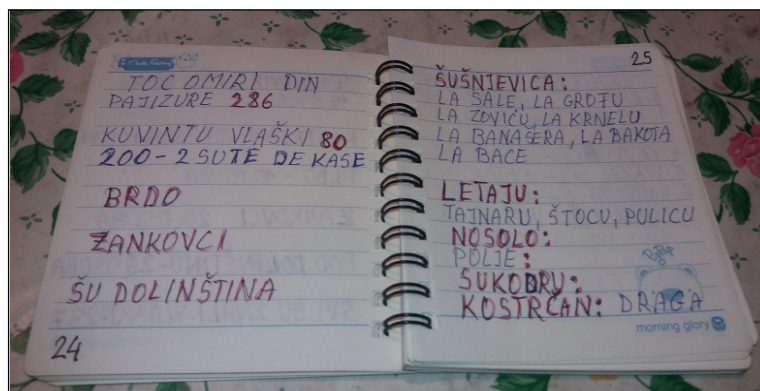 TOC OMIRI DIN
PAJIZURE 286
KUVINTU VLAŠKI 80
200-2 SUTE DE KASE
BRDO
ŽANKOVCI
ŠU DOLINŠTINA
24
25
ŠUŠNJEVICA:
LA SALE, LA GROTU
LA ZOVICU, LA KRNELU
LA BANAŠERA, LA BAKOTA
LA BACE
LETAJU:
TAJNARU, ŠTOCU, PULICU
NOSOLO:
POLJE:
SUKODRU:
KOSTRČAN: DRAGA
morning glory